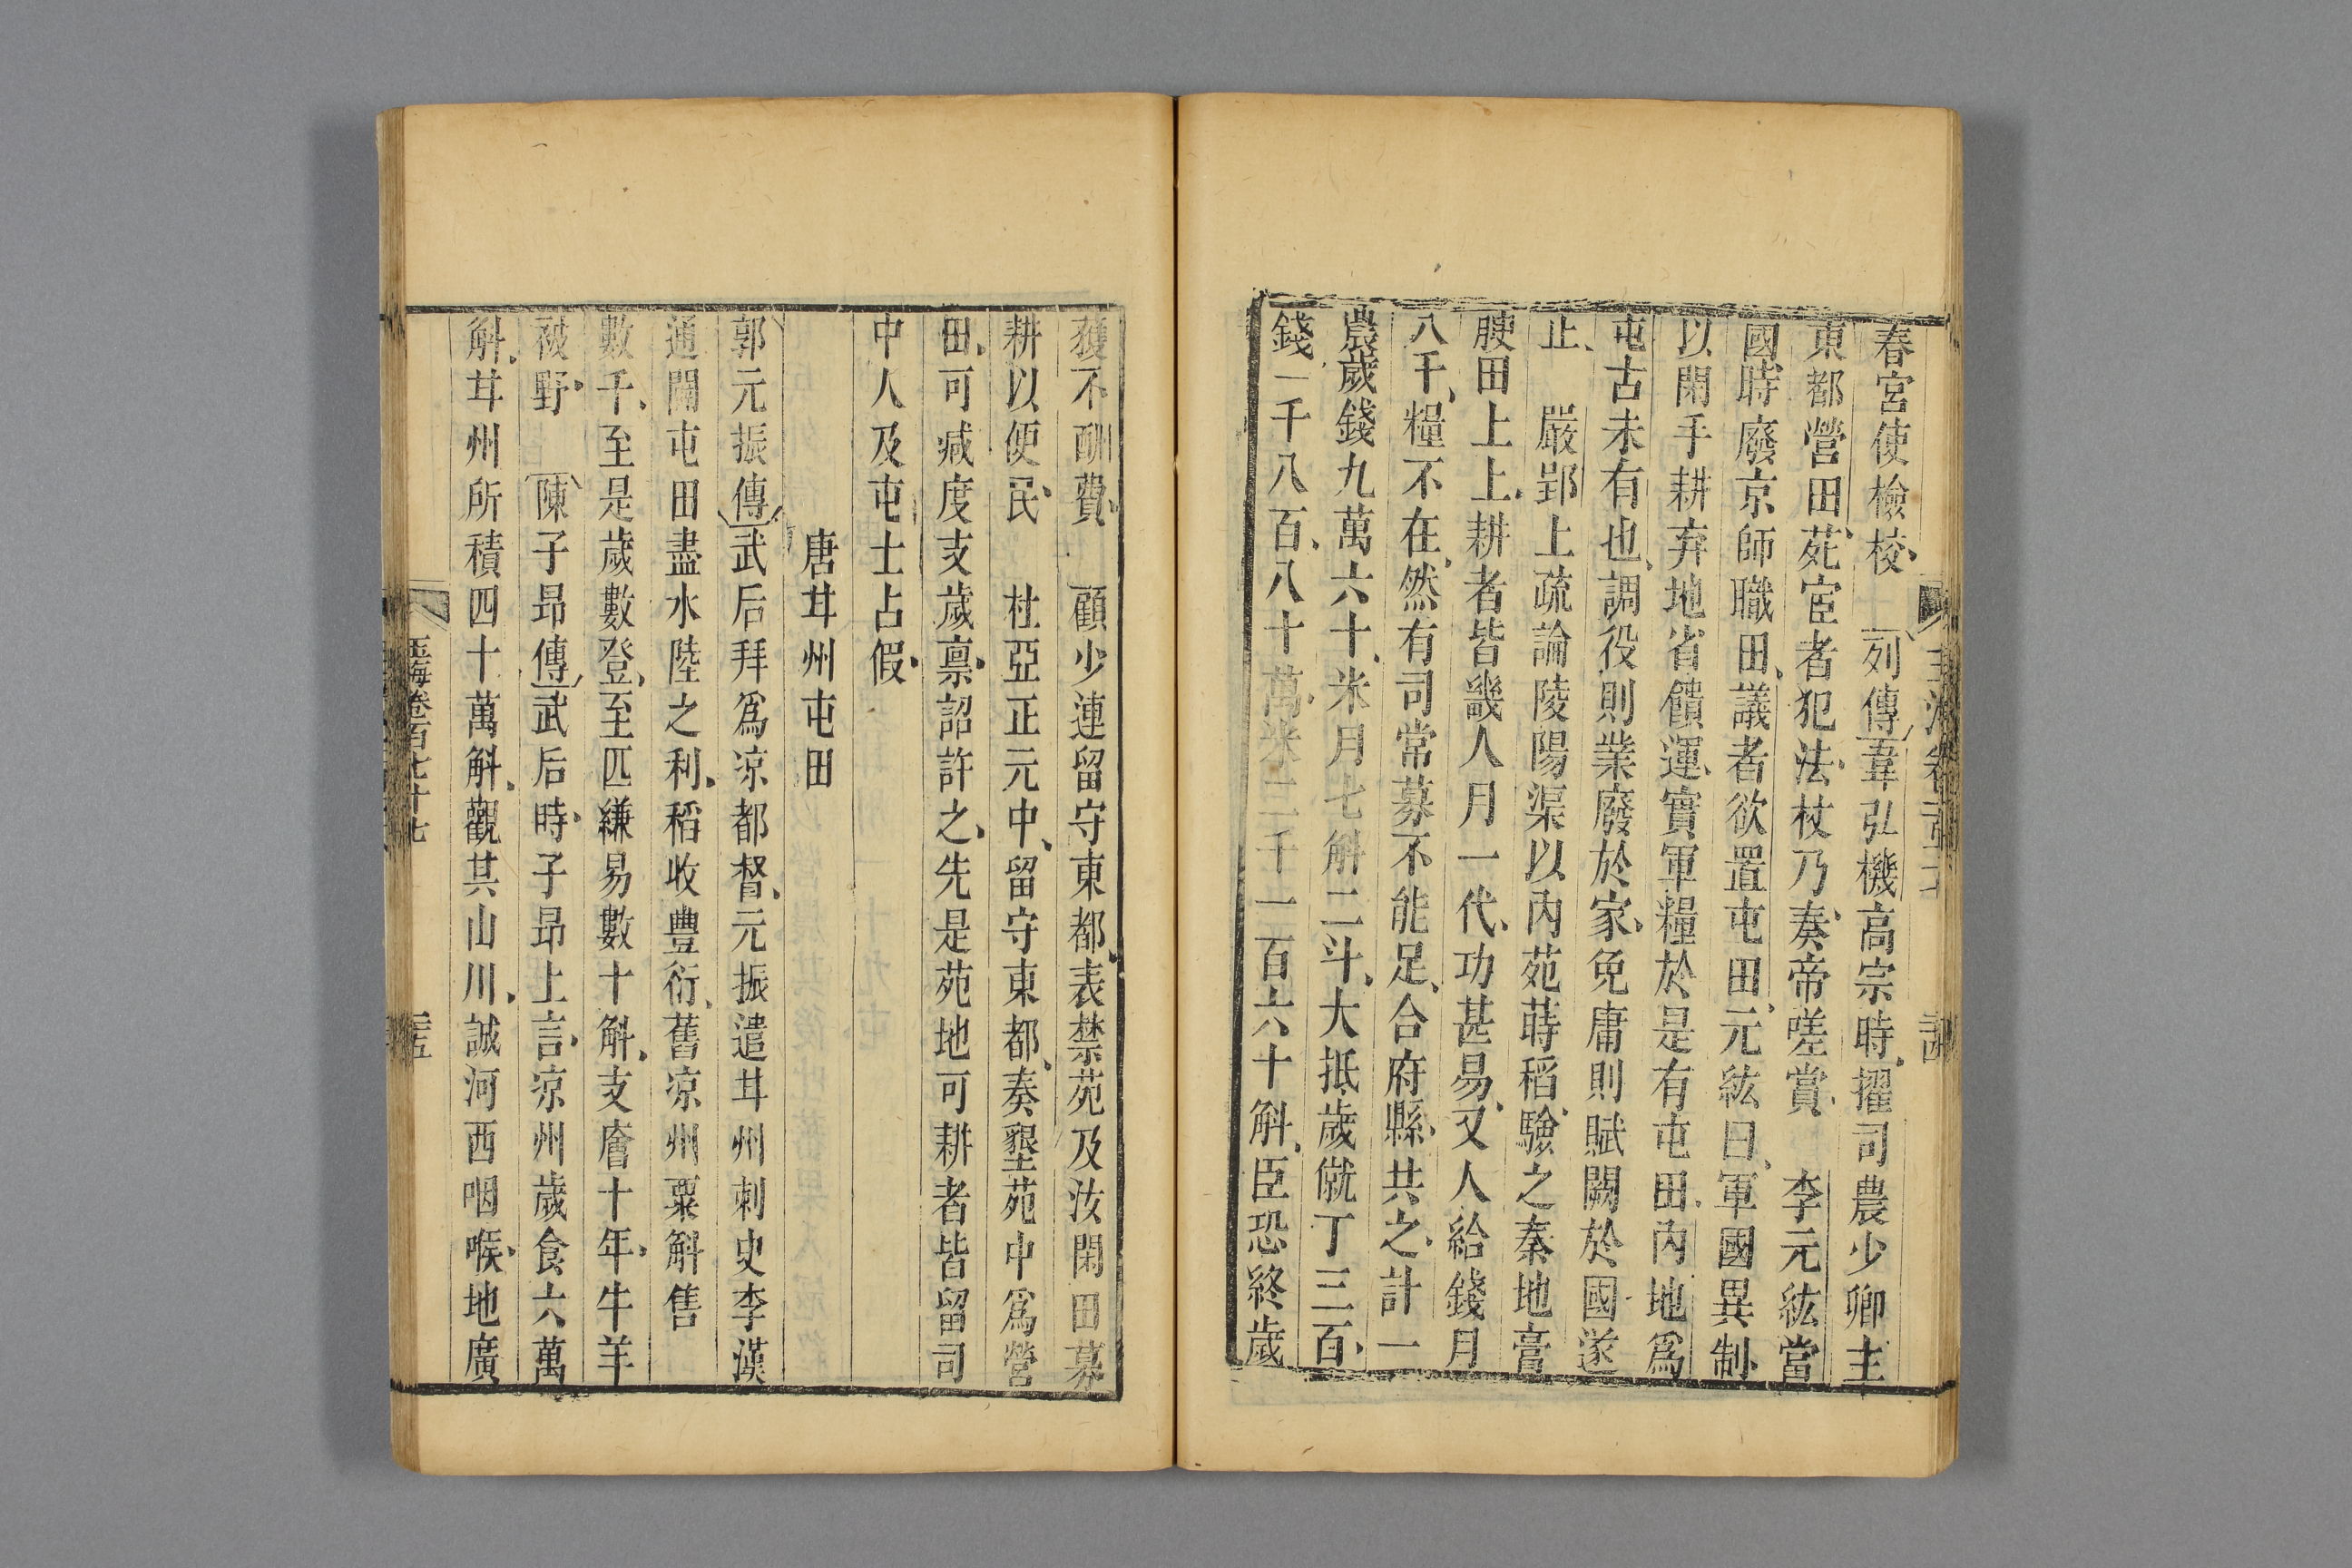 春宮使檢校　列傳韋弘機高宗時擢司農少卿主
東都營田苑宦者犯法杖乃奏帝嗟賞　李元紘當
國時廢京師職田議者欲置屯田元紘曰軍國異制
以閑手耕弃地省饋運實軍糧於是有屯田內地爲
屯古未有也調役則業廢於家免庸則賦闕於國遂
止　嚴郢上疏論陵陽渠以內苑蒔稻驗之秦地膏
腴田上上耕者皆畿人月一代功甚易又人給錢月
八千糧不在然有司常募不能足合府縣共之計一
農歲錢九萬六十米月七斛二斗大抵歲僦丁三百
錢一千八百八十萬米二千一百六十斛臣恐終歲
獲不酬費　顧少連留守東都表禁苑及汝閑田募
耕以便民　杜亞正元中留守東都奏墾苑中爲營
田可减度支歲禀詔許之先是苑地可耕者皆留司
中人及屯士占假
唐甘州屯田
郭元振傳武后拜爲凉都督元振遣甘州刺史李漢
通闢屯田盡水陸之利稻收豐衍舊凉州粟斛售
數千至是歲數登至匹縑易數十斛支廥十年牛羊
被野　陳子昂傳武后時子昂上言凉州歲食六萬
斛甘州所積四十萬斛觀其山川誠河西咽喉地廣
玉海卷百七十七
二十五